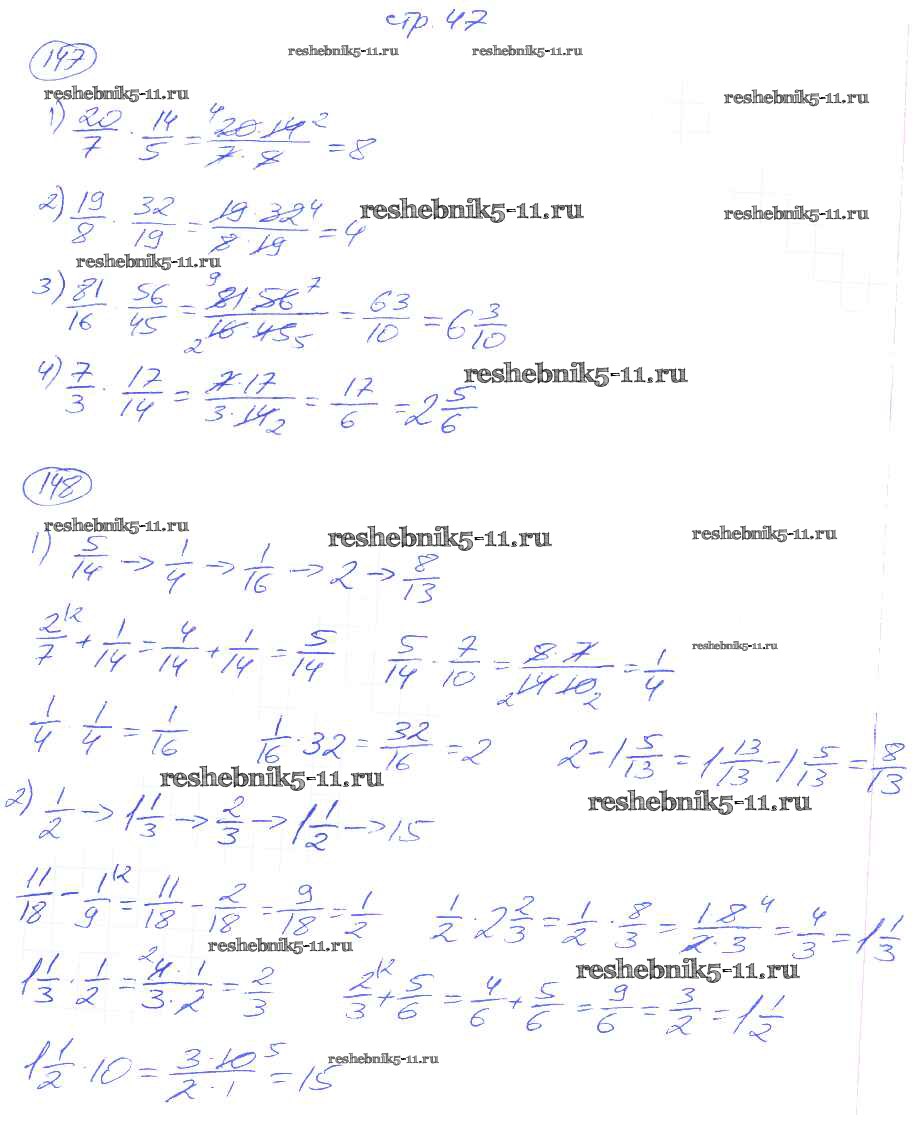 стр. 47
reshebnik5-11.ru reshebnik5-11.ru
147
reshebnik5-11.ru reshebnik5-11.ru
1) 20/7 · 14/5 = 20·14/7·5 = 8
2) 19/8 · 32/19 = 19·32/8·19 = 4
reshebnik5-11.ru reshebnik5-11.ru
reshebnik5-11.ru
3) 81/16 · 56/45 = 81 56/16 45 = 63/10 = 6 3/10
4) 7/3 · 17/14 = 7·17/3·14 = 17/6 = 2 5/6
reshebnik5-11.ru
148
reshebnik5-11.ru reshebnik5-11.ru reshebnik5-11.ru
1) 5/14 → 1/4 → 1/16 → 2 → 8/13
2/7 + 1/14 = 4/14 + 1/14 = 5/14 5/14 · 7/10 = 5·7/14 10 = 1/4
reshebnik5-11.ru
1/4 · 1/4 = 1/16 1/16 · 32 = 32/16 = 2 2 - 1 5/13 = 1 13/13 - 1 5/13 = 8/13
reshebnik5-11.ru reshebnik5-11.ru
2) 1/2 → 1 1/3 → 2/3 → 1 1/2 → 15
11/18 - 1/9 = 11/18 - 2/18 = 9/18 = 1/2 1/2 · 2 2/3 = 1/2 · 8/3 = 1 8/2·3 = 4/3 = 1 1/3
reshebnik5-11.ru reshebnik5-11.ru
1 1/3 · 1/2 = 4·1/3·2 = 2/3 2/3 + 5/6 = 4/6 + 5/6 = 9/6 = 3/2 = 1 1/2
1 1/2 · 10 = 3·10/2·1 = 15
reshebnik5-11.ru